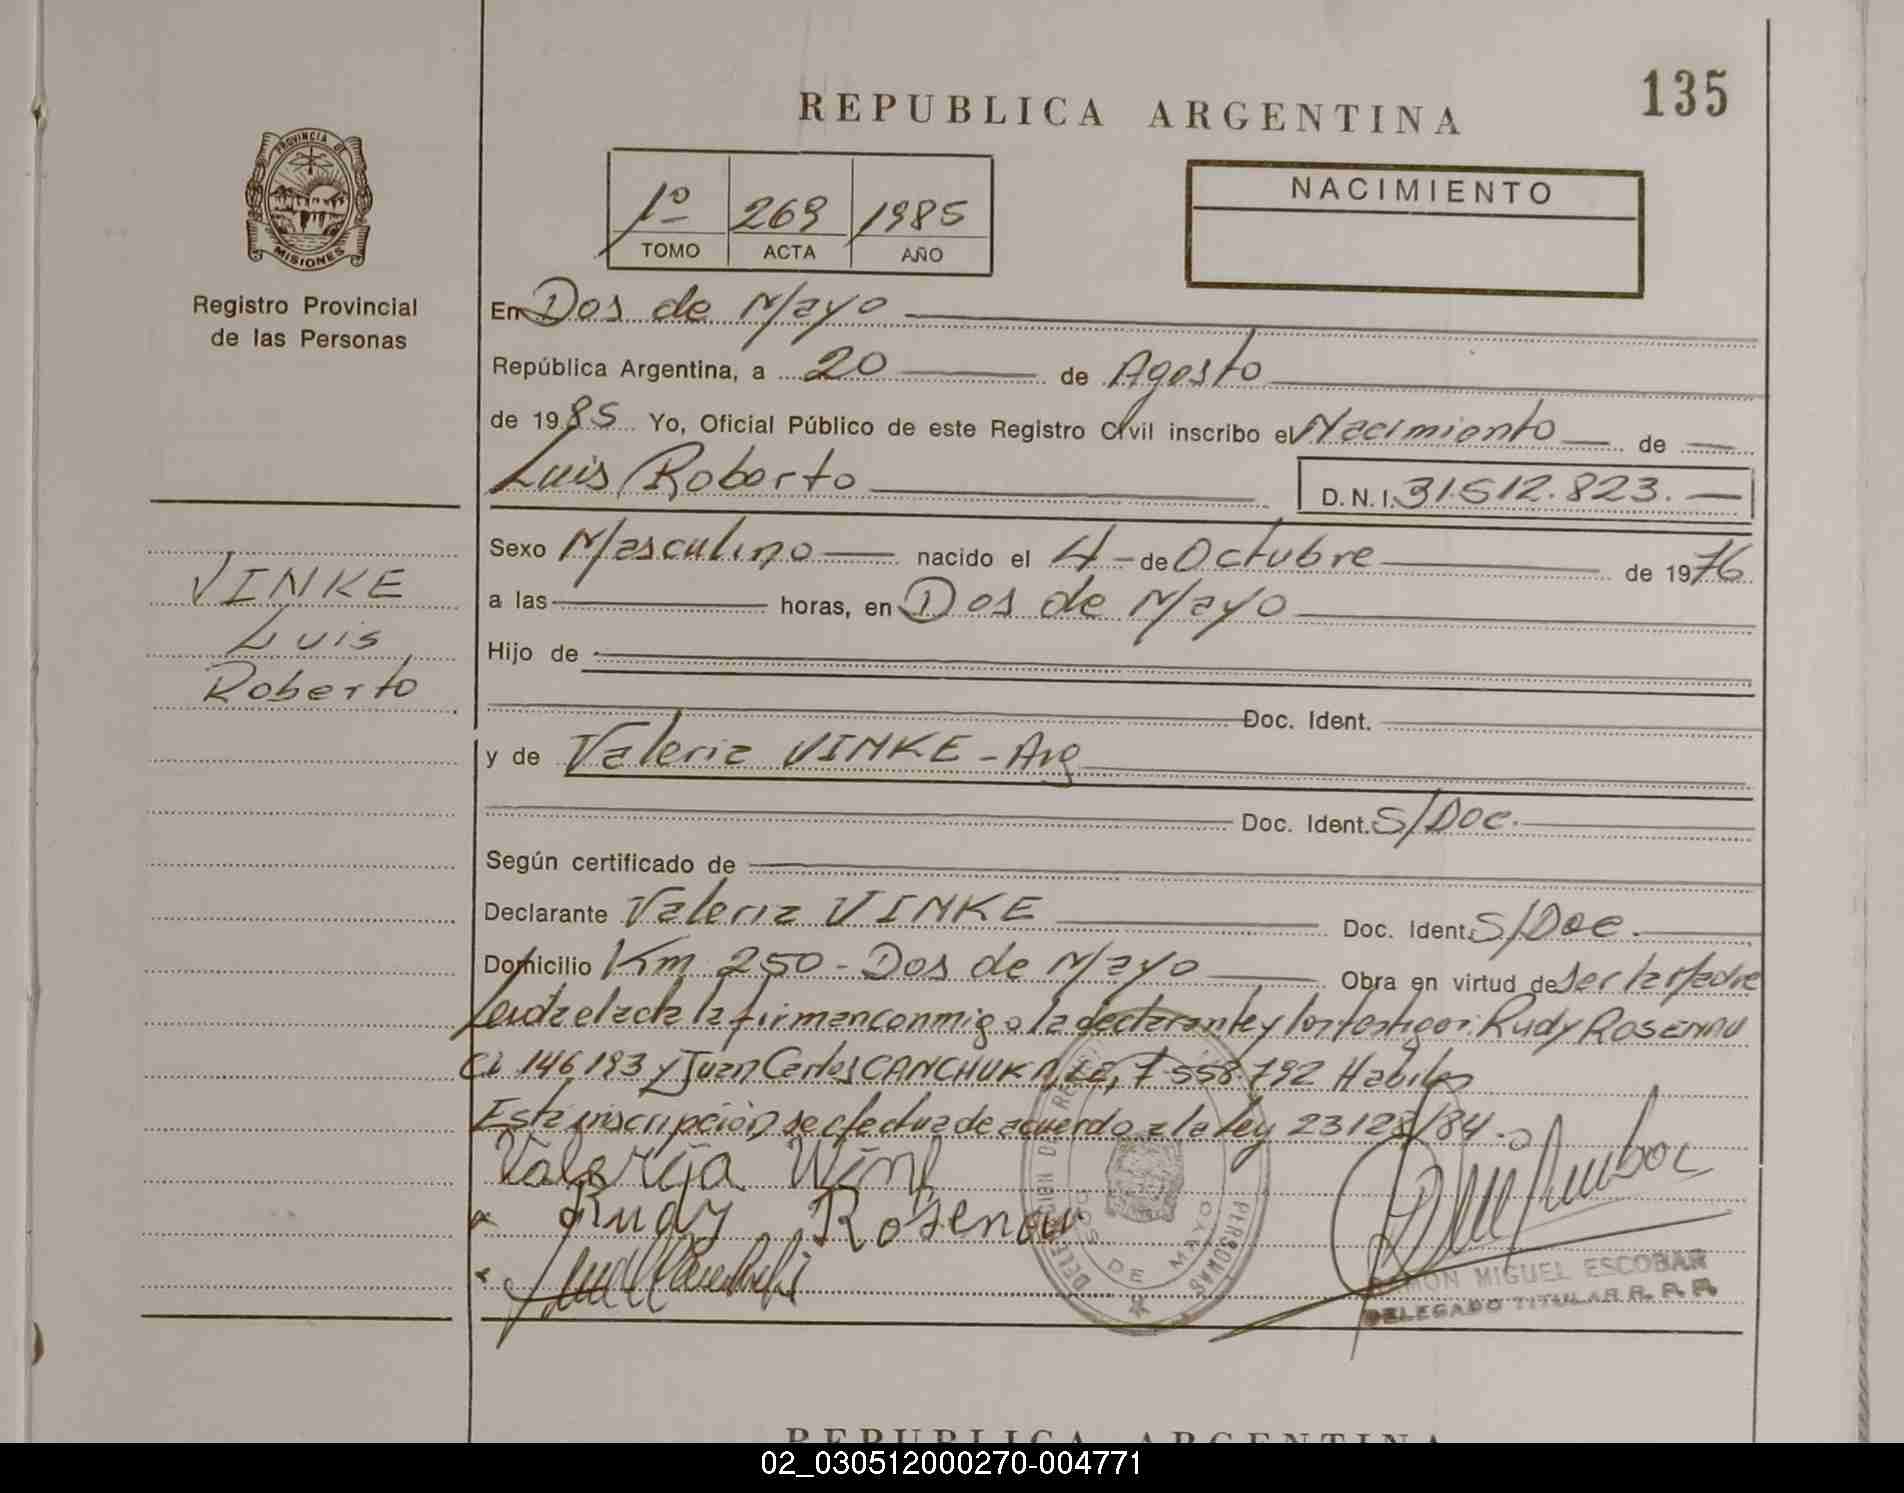 135
REPUBLICA ARGENTINA
PROVINCIA DE
MISIONES
Registro Provincial
de las Personas
1º 269 1985
TOMO ACTA AÑO
NACIMIENTO
En Dos de Mayo
República Argentina, a 20 de Agosto
de 1985 Yo, Oficial Público de este Registro Civil inscribo el Nacimiento de
Luis Roberto D.N.I. 31.512.823.
Sexo Masculino nacido el 4 de Octubre de 1976
a las horas, en Dos de Mayo
Hijo de
Doc. Ident.
y de Valeria VINKE - Arg
Doc. Ident. S/Doc.
Según certificado de
Declarante Valeria VINKE Doc. Ident. S/Doc.
Domicilio Km 250 - Dos de Mayo Obra en virtud de ser la Madre
Leida el acta la firman conmigo la declarante y los testigos: Rudy ROSENAU
CI 146193 y Juan Carlos CANCHUK LE, 7.558.792 Habiles
Esta inscripción se efectua de acuerdo a la Ley 23128/84.
VINKE
Luis
Roberto
Valerija
Rudy Rosenau
DOS DE MAYO
PERSONAS
RAMON MIGUEL ESCOBAR
DELEGADO TITULAR R. P. P.
REPUBLICA ARGENTINA
02_030512000270-004771